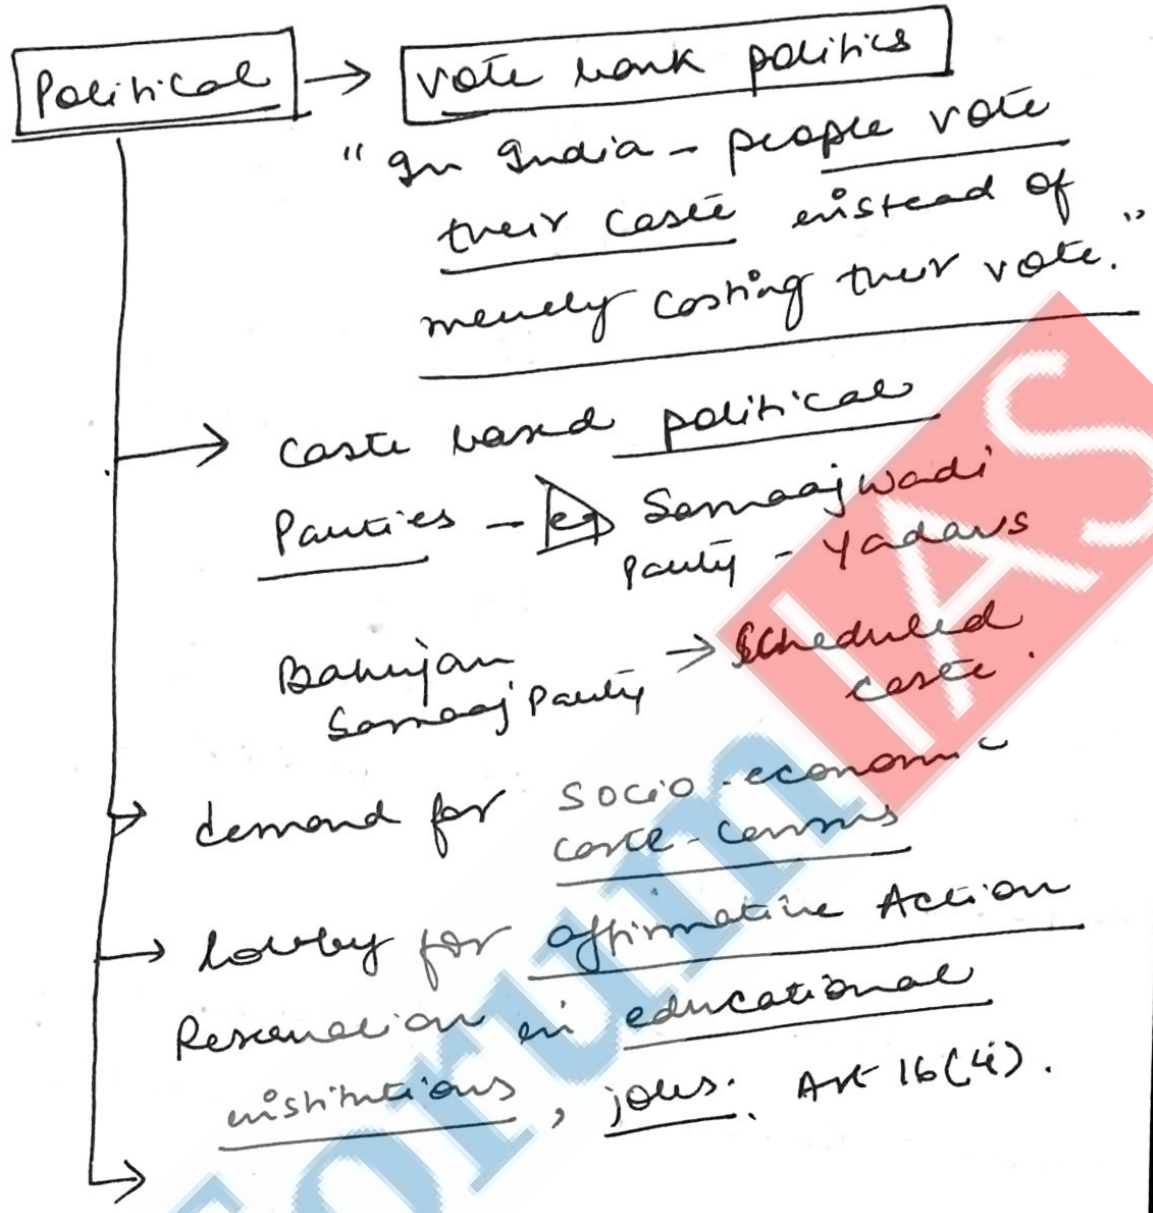 Political → Vote bank politics
"In India - people vote
their caste instead of
merely casting their vote."
→ Caste based political
Parties - eg Samaajwadi
Party - Yadavs
Bahujan → Scheduled
Samaaj Party caste.
→ demand for socio-economic
caste-census
→ lobby for affirmative Action
Reservation in educational
institutions, jobs. Art 16(4).
→
Forum IAS